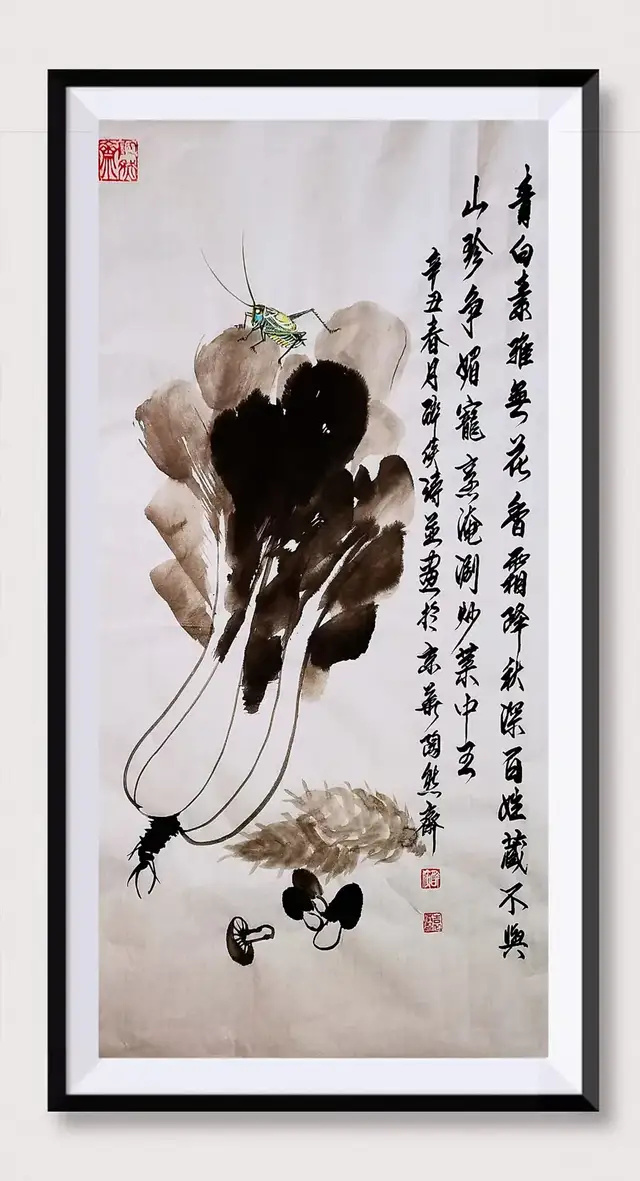 青白素雅無花香霜降秋深百姓藏不與
山珍争媚寵烹淹涮炒菜中王
辛丑春月醉詩並畫於京華陶然齋
陶然齋